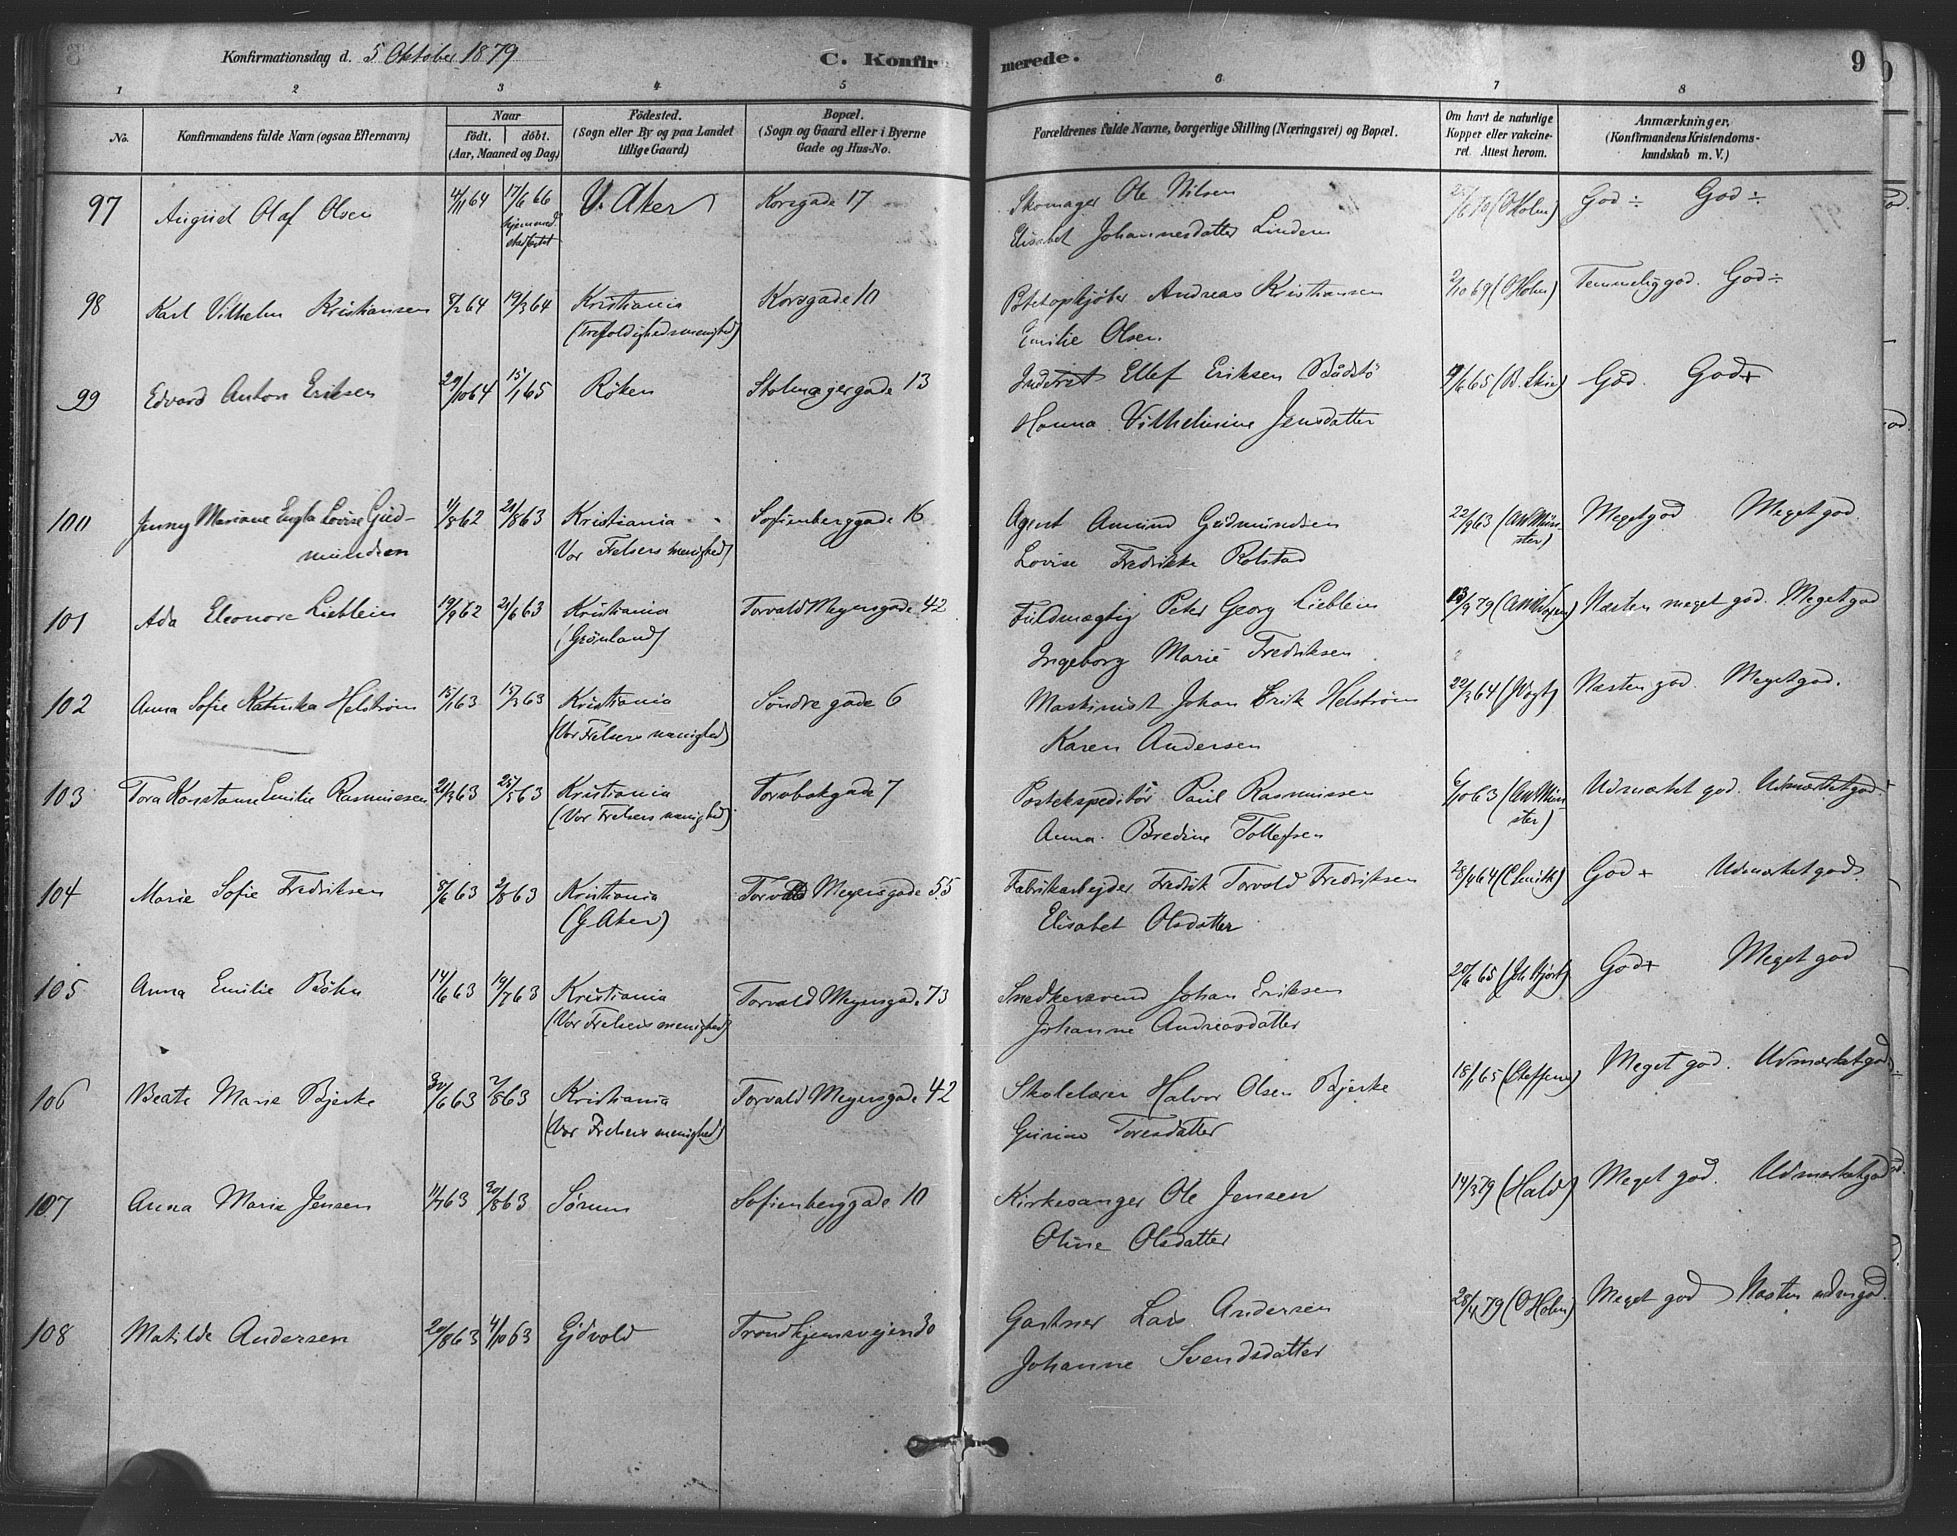 Konfirmationsdag d. 5 Oktober 1879 C. Konfirmerede. 9
1 2 3 4 5 6 7 8
No. Konfirmandens fulde Navn (ogsaa Efternavn) Naar födt. döbt. (Aar, Maaned og Dag) Födested. (Sogn eller By og paa Landet tillige Gaard) Bopæl. (Sogn og Gaard eller i Byerne Gade og Hus-No. Forældrenes fulde Navne, borgerlige Stilling (Næringsvei) og Bopæl. Om havt de naturlige Kopper eller vakcineret. Attest herom. Anmærkninger, (Konfirmandens Kristendomskundskab m. V.)
97 August Olaf Olsen 4/11 64 17/6 66 V. Aker Korsgade 17 Skomager Ole Nilsen 25/6 70 (O Holm) God ÷ God ÷
hjemmed. stadfæstet Elisabet Johannesdatter Lindern
98 Karl Vilhelm Kristiansen 8/2 64 19/3 64 Kristiania Korsgade 10 Potetopkjøber Andreas Kristiansen 2/10 69 (O Holm) Temmelig god. God ÷
(Trefoldighedsmenighed) Emilie Olsen
99 Edvard Anton Eriksen 29/10 64 15/1 65 Röken Stolmagergade 13 Inderst Ellef Eriksen Bådstö 9/6 65 (B. Skie) God. God +
Hanna Vilhelmine Jensdatter
100 Jenny Mariane Engla Lovise Gud- 11/8 62 21/8 63 Kristiania Sofienberggade 16 Agent Amund Gudmundsen 22/9 63 (AW Mün- Meget god Meget god
mundsen Vor Frelsers menighed) Lovise Fredrikke Rolstad ster)
101 Ada Eleonore Lieblein 19/9 62 21/6 63 Kristiania Torvald Meyersgade 42 Fuldmægtig Peter Georg Lieblein 13/9 79 Næsten meget god. Meget god
(Grønland) Ingeborg Marie Fredriksen
102 Anna Sofie Katinka Helström 15/1 63 15/3 63 Kristiania Söndre gade 6 Maskinist Johan Erik Helström 22/3 64 (Vogt) Næsten god Meget god.
(Vor Frelsers menighed) Karen Andersen
103 Tora Konstance Emilie Rasmussen 21/3 63 25/5 63 Kristiania Torvbakgade 7 Postekspeditör Paul Rasmussen 6/10 63 (AW Mün- Udmærket god. Udmærket god.
(Vor Frelsers menighed) Anna Bredine Tollefsen ster)
104 Marie Sofie Fredriksen 8/6 63 2/8 63 Kristiania Torvald Meyersgade 55 Fabrikarbejder Fredrik Torvald Fredriksen 28/4 64 (Smith) God + Udmærket god.
(G. Aker) Elisabet Olsdatter
105 Anna Emilie Böhn 14/6 63 19/7 63 Kristiania Torvald Meyersgade 73 Snedkersvend Johan Eriksen 20/6 65 God + Meget god
(Vor Frelsers menighed) Johanne Andreasdatter
106 Beate Marie Bjerke 30/6 63 2/8 63 Kristiania Torvald Meyersgade 42 Skolelærer Halvor Olsen Bjerke 18/1 65 (Steffens) Meget god. Udmærket god.
(Vor Frelsers menighed) Gurine Toresdatter
107 Anna Marie Jensen 11/7 63 30/8 63 Sörum Sofienberggade 10 Kirkesanger Ole Jensen 14/3 79 (Hald) Meget god. Udmærket god
Oline Olsdatter
108 Matilde Andersen 20/8 63 4/10 63 Ejdvold Trondhjemsvejen 30 Gartner Lars Andersen 28/4 79 (O Holm) Meget god Næsten udm. god.
Johanne Svendsdatter